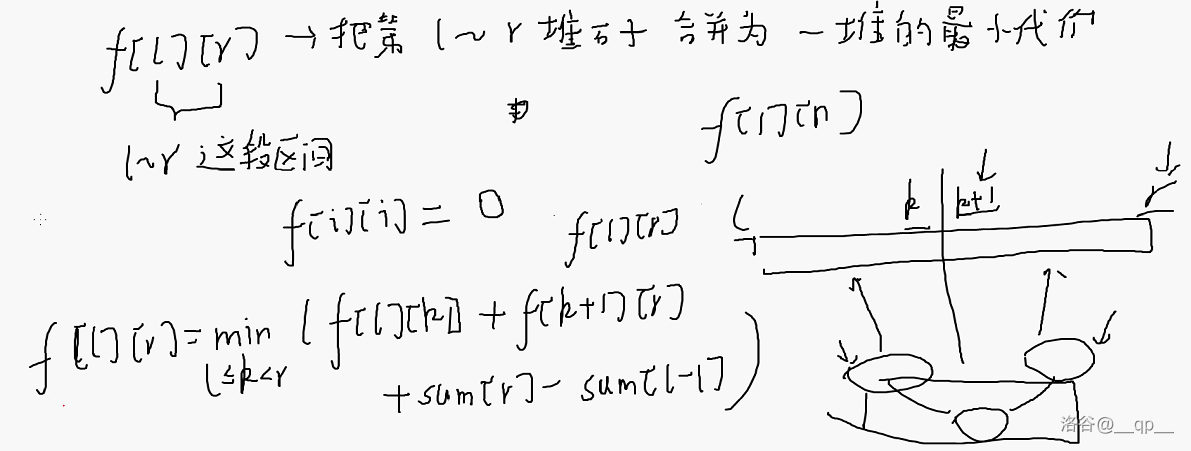 f[l][r] → 把第 l ~ r 堆石子 合并为 一堆的最小代价
l~r 这段区间
f[1][n]
f[i][i] = 0
f[l][r]
l k k+1 r
f[l][r] = min ( f[l][k] + f[k+1][r]
l≤k<r
+ sum[r] - sum[l-1] )
洛谷@__qp__